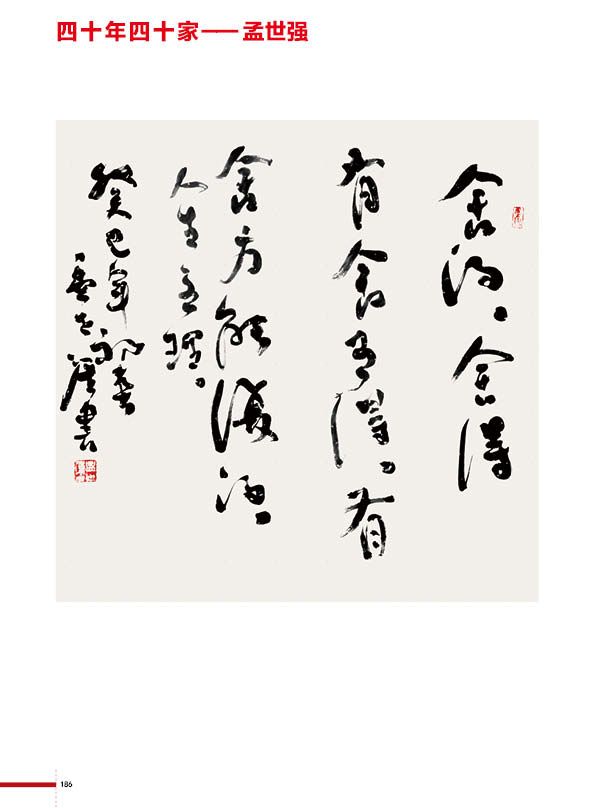 四十年四十家——孟世强
舍得、舍得
有舍有得。有
舍方能獲得、
人生至理。
癸巳年初春
孟世强書
186